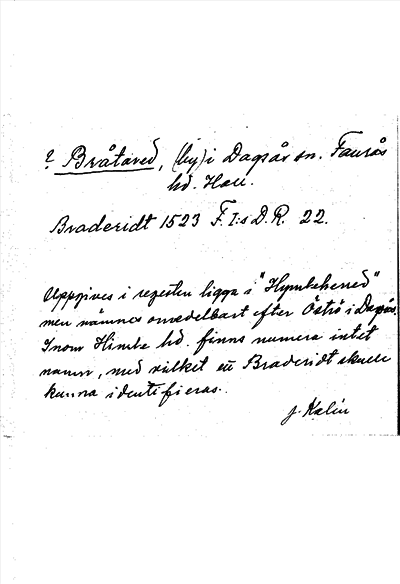 ? Bråtared, (by) i Dagsås sn. Faurås
hd. Hall.
Braderidt 1523 F. I:s D.R. 22.
Uppgives i regesten ligga i "Hymlehered"
men nämnes omedelbart efter Öströ i Dagsås.
Inom Himle hd. finns numera intet
namn, med vilket ett Braderidt skulle
kunna identifieras.
J. Kalén